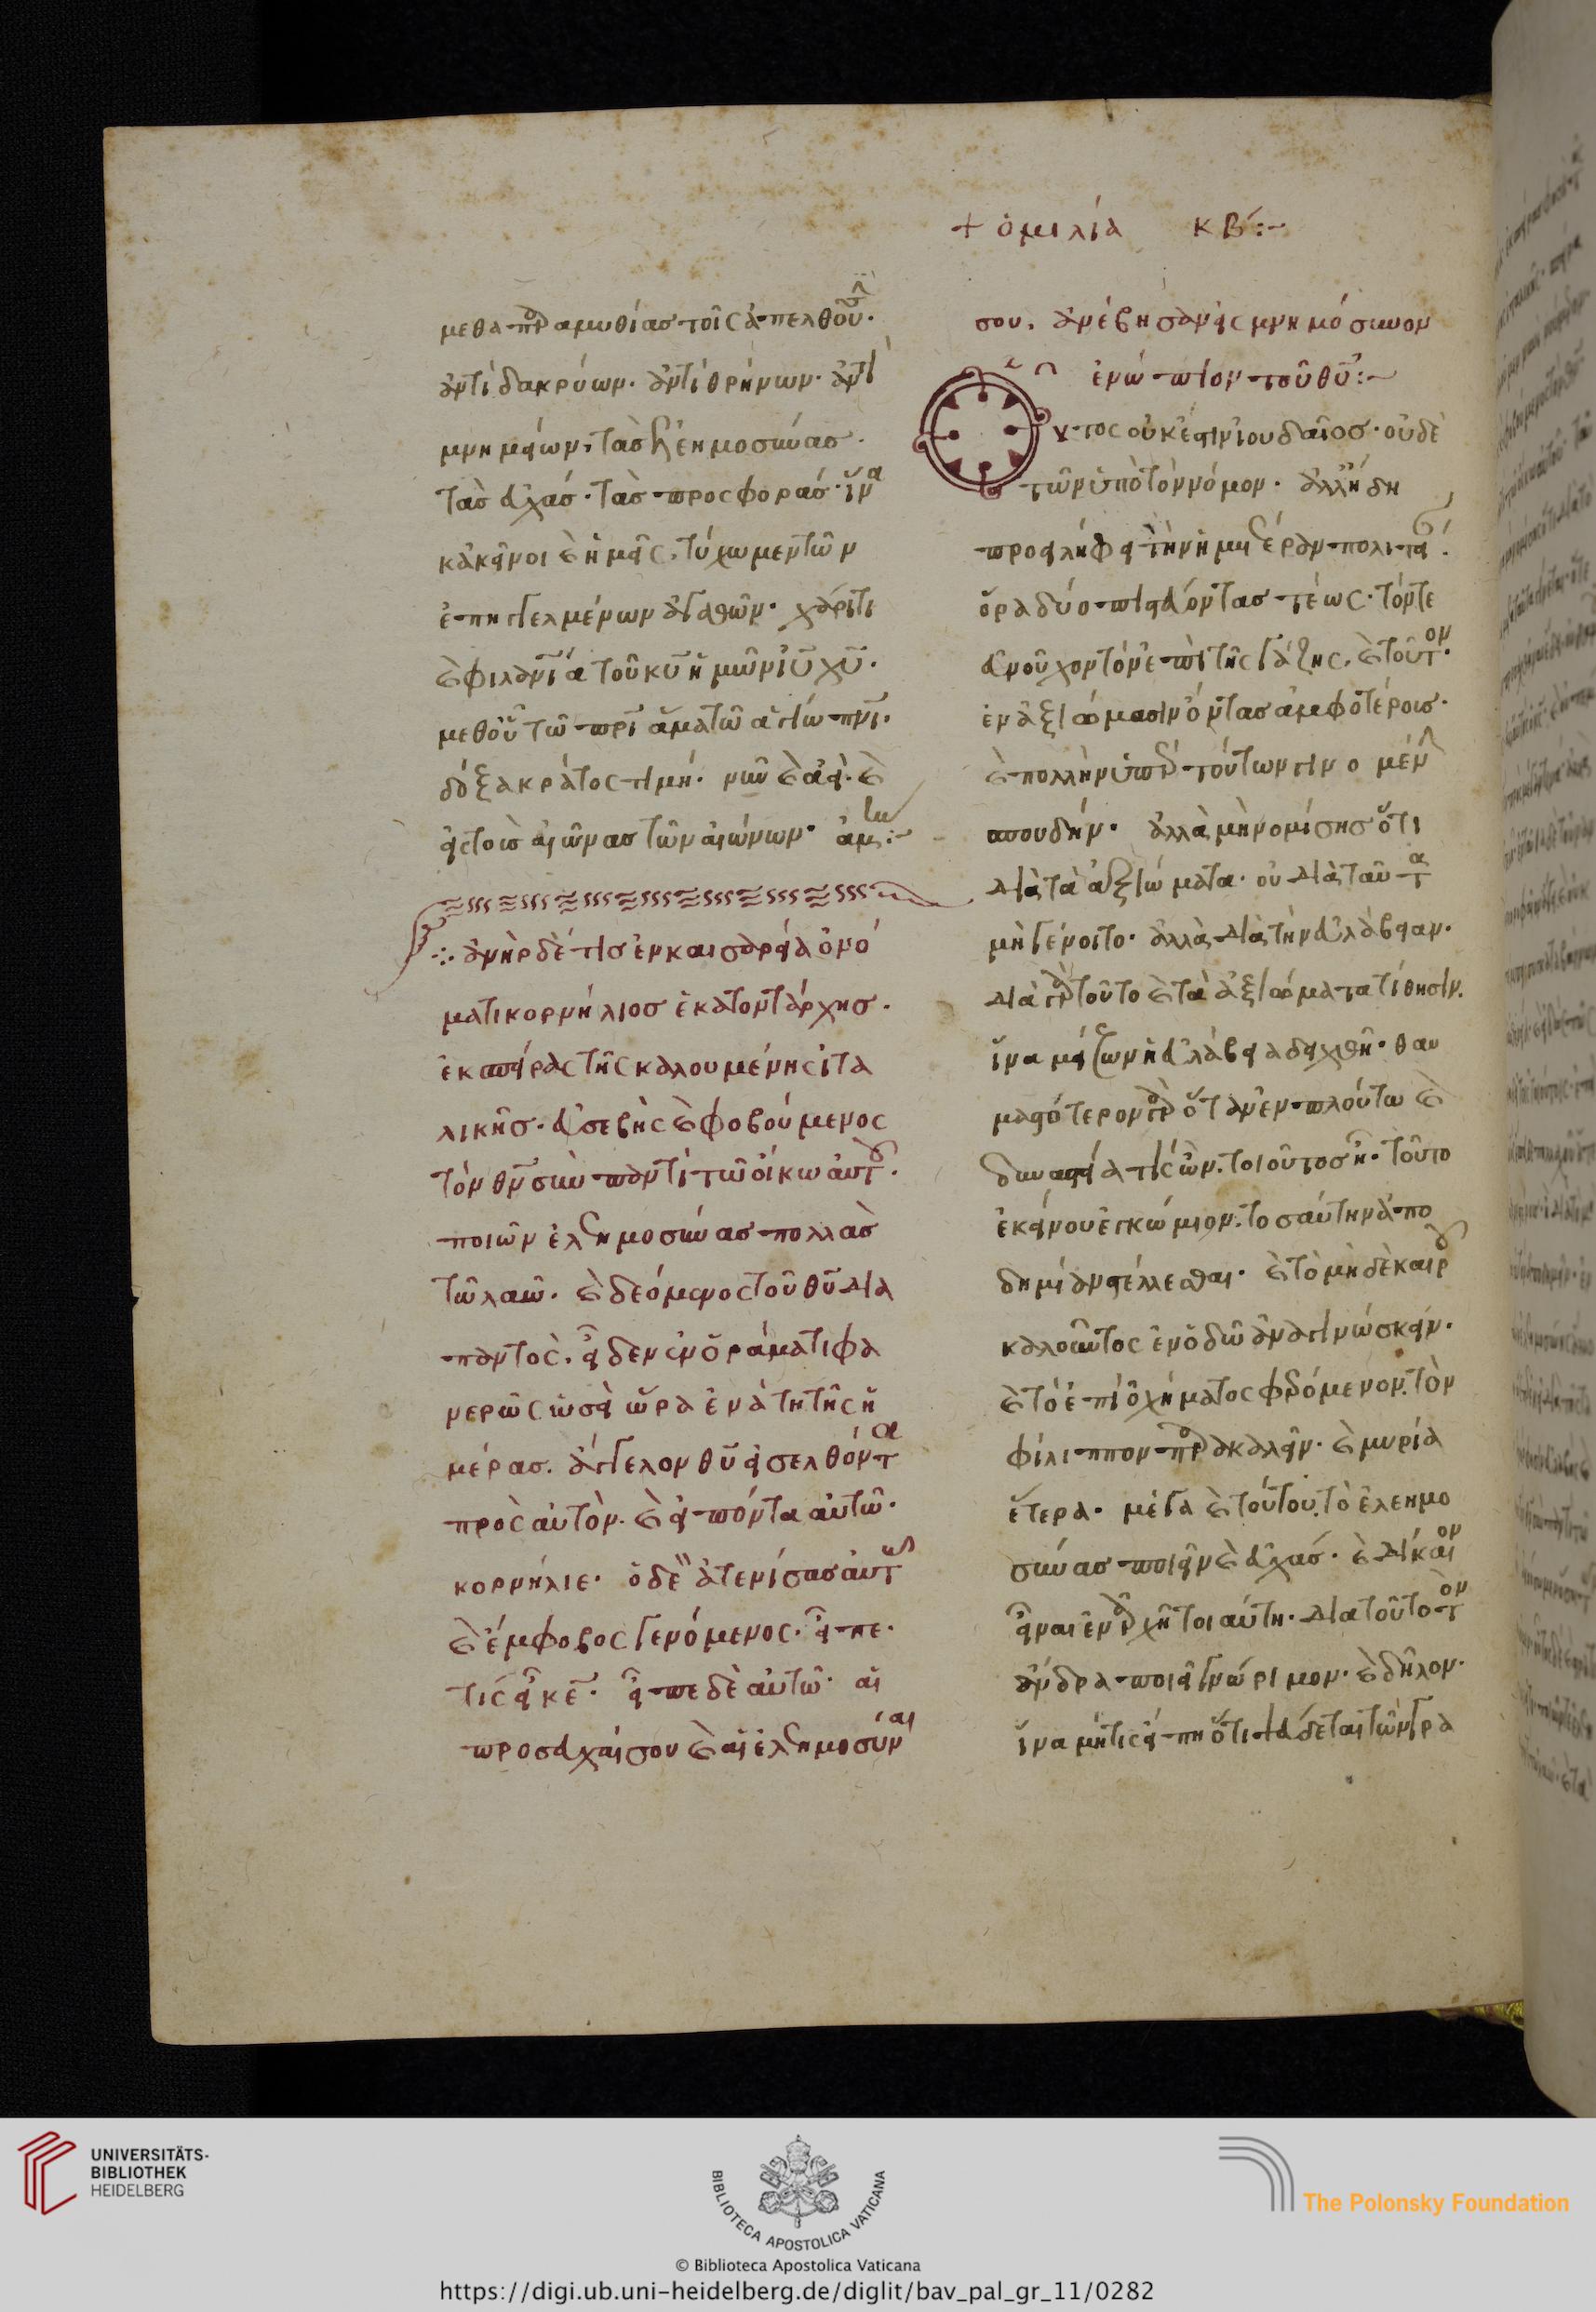 + ὁμιλία κβ´:~
μεθα παραμυθίας τοῖς ἀπελθοῦ·
ἀντὶ δακρύων· ἀντὶ θρήνων· ἀντὶ
μνημείων, τὰς ἐλεημοσύνας·
τὰς εὐχάς· τὰς προσφοράς· ἵνα
κἀκεῖνοι καὶ ἡμεῖς, τύχωμεν τῶν
ἐπηγγελμένων ἀγαθῶν· χάριτι
καὶ φιλανίᾳ τοῦ κυ ἡμῶν ιυ χυ·
μεθ οὗ τῶ πρι ἅμα τῶ ἁγίω πνι·
δόξα κράτος τιμή· νῦν καὶ ἀεὶ· καὶ
εἰς τοὺς αἰῶνας τῶν αἰώνων· ἀμήν:~
ἀνὴρ δέ τις ἐν καισαρεία ὀνό
ματι κορνήλιος ἑκατοντάρχης·
ἐκ σπείρας τῆς καλουμένης ἰτα
λικῆς· εὐσεβὴς καὶ φοβούμενος
τὸν θν σὺν παντὶ τῶ οἴκω αὐτοῦ·
ποιῶν ἐλεημοσύνας πολλὰς
τῶ λαῶ· καὶ δεόμενος τοῦ θυ δια
παντὸς· εἶδεν ἐν ὁράματι φα
νερῶς ὡσεὶ ὥρα ἐνάτη τῆς ἡ
μέρας· ἄγγελον θυ εἰσελθόντα
πρὸς αὐτὸν· καὶ εἰπόντα αὐτῶ·
κορνήλιε· ὁ δὲ ἀτενίσας αὐτῶ
καὶ ἔμφοβος γενόμενος· εἶπε·
τίς εἶ κε· εἶπε δὲ αὐτῶ· αἱ
προσευχαί σου καὶ αἱ ἐλεημοσύναι
σου, ἀνέβησαν εἰς μνημόσυνον
ἐνώπιον τοῦ θυ:~
Οὗτος οὐκ ἔστιν ἰουδαῖος· οὐδὲ
τῶν ὑπὸ τὸν νόμον· ἀλλ ἤδη
προειλήφει τὴν ἡμετέραν πολιτείαν·
ὅρα δύο πιστεύοντας τέως· τόν τε
εὐνοῦχον τὸν ἐπὶ τῆς γάζης, καὶ τοῦτον·
ἐν ἀξιώμασιν ὄντας ἀμφοτέροις·
καὶ πολλὴν ὑπὲρ τούτων γινομένην
σπουδήν· ἀλλὰ μὴ νομίσης ὅτι
διὰ τὰ ἀξιώματα· οὐ διὰ ταῦτα
μὴ γένοιτο· ἀλλὰ διὰ τὴν εὐλάβειαν·
διὰ γὰρ τοῦτο καὶ τὰ ἀξιώματα τίθησιν·
ἵνα μείζων ἡ εὐλάβεια δειχθῆ· θαυ
μαστότερον γὰρ ὅταν ἐν πλούτω καὶ
δυναστεία τίς ὢν· τοιοῦτος ἦ· τοῦτο
ἐκείνου ἐγκώμιον· τοσαύτην ἀπο
δημίαν στέλλεσθαι· καὶ τὸ μὴ δὲ καιροῦ
καλοῦντος ἐν ὁδῶ ἀναγινώσκειν·
καὶ τὸ ἐπὶ ὀχήματος φερόμενον· τὸν
φίλιππον παρακαλεῖν· καὶ μυρία
ἕτερα· μέγα καὶ τούτου, τὸ ἐλεημο
σύνας ποιεῖν καὶ εὐχάς· καὶ δίκαιον
εἶναι ἐν ἀρχῆ τοιαύτη· διὰ τοῦτο τὸν
ἄνδρα ποιεῖ γνώριμον· καὶ δῆλον·
ἵνα μήτις εἴπη ὅτι ψεύδεται τῶν γρα
UNIVERSITÄTS-
BIBLIOTHEK
HEIDELBERG
BIBLIOTECA APOSTOLICA VATICANA
The Polonsky Foundation
© Biblioteca Apostolica Vaticana
https://digi.ub.uni-heidelberg.de/diglit/bav_pal_gr_11/0282